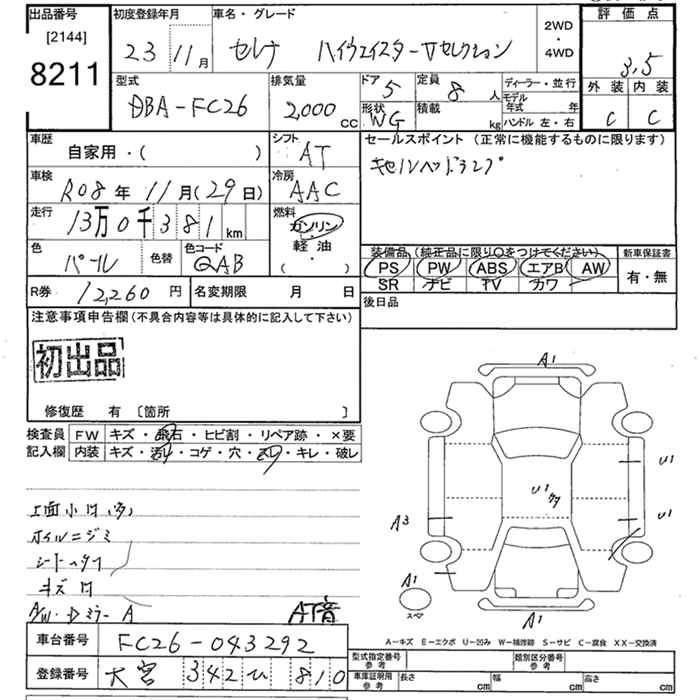 出品番号
[2144]
8211
初度登録年月
23 11月
車名・グレード
セレナ ハイウェイスターVセレクション
2WD
・
4WD
評価点
3.5
外装 内装
C C
型式
DBA-FC26
排気量
2,000 cc
ドア 5
形状 WG
定員 8 人
積載 kg
ディーラー・並行
モデル年式 年
ハンドル 左・右
車歴
自家用・( )
シフト
AT
車検
R08年 11月(29日)
冷房
AAC
走行
13万0千381 km
燃料
ガソリン
・
軽油
( ・ )
色
パール
色替
色コード
QAB
R券 12,260 円
名変期限 月 日
セールスポイント (正常に機能するものに限ります)
キセノンヘッドランプ
装備品 (純正品に限り○をつけてください)
PS PW ABS エアB AW
SR ナビ TV カワ
新車保証書
有・無
後日品
注意事項申告欄(不具合内容等は具体的に記入して下さい)
初出品
修復歴 有 〔箇所 〕
検査員記入欄
FW キズ・飛石・ヒビ割・リペア跡・×要
内装 キズ・汚れ・コゲ・穴・スレ・キレ・破レ
上面小凹(多)
ホイルニジミ
シート
キズ凹
A/W・Dミラー A
AT音
A1
U1
U1
U1
A3
A1
スペア
A1
A-キズ E-エクボ U-凹み W-補修跡 S-サビ C-腐食 XX-交換済
車台番号 FC26-043292
登録番号 大宮 342 ひ 810
型式指定番号 参考
類別区分番号 参考
車庫証明用 参考
長さ cm 幅 cm 高さ cm